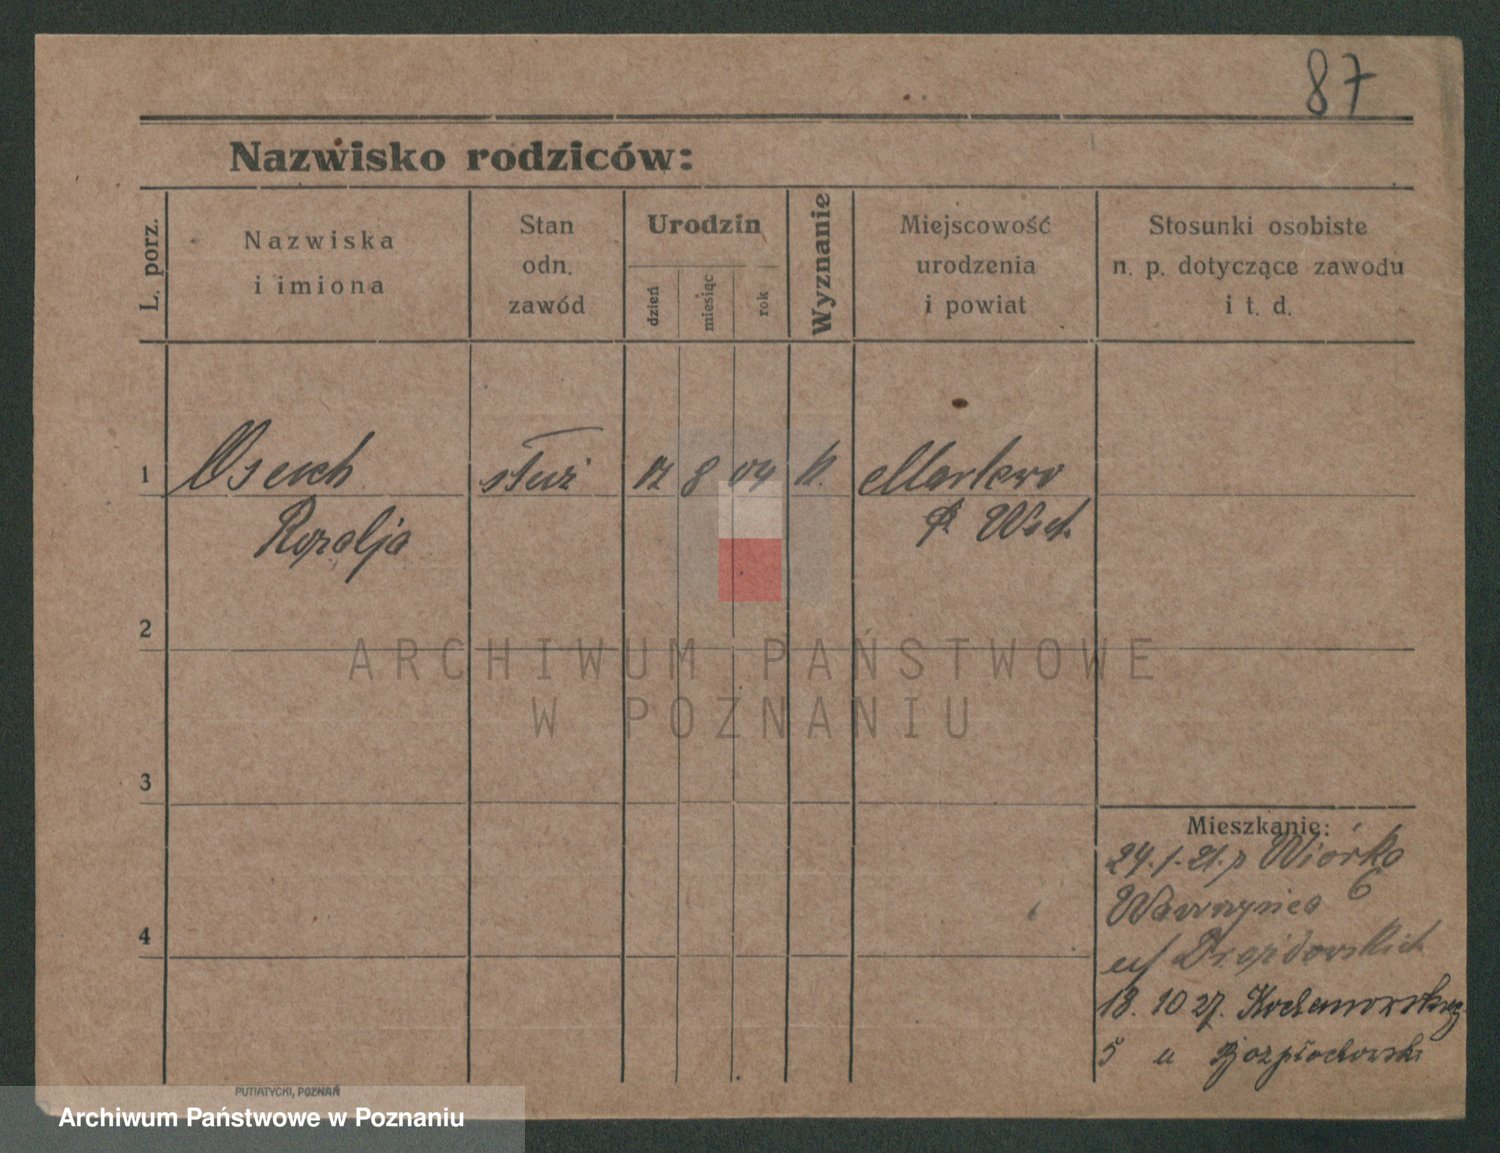 87
Nazwisko rodziców:
L. porz.
Nazwiska
i imiona
Stan
odn.
zawód
Urodzin
dzień
miesiąc
rok
Wyznanie
Miejscowość
urodzenia
i powiat
Stosunki osobiste
n. p. dotyczące zawodu
i t. d.
1
służ
12 8 04 k.
Rozalja
2
ARCHIWUM PAŃSTWOWE
W POZNANIU
3
Mieszkanie:
24.1.21. p Wiórko
Wawrzyńca 6
4
18. 10 27.
5 u
PUTIATYCKI, POZNAŃ
Archiwum Państwowe w Poznaniu